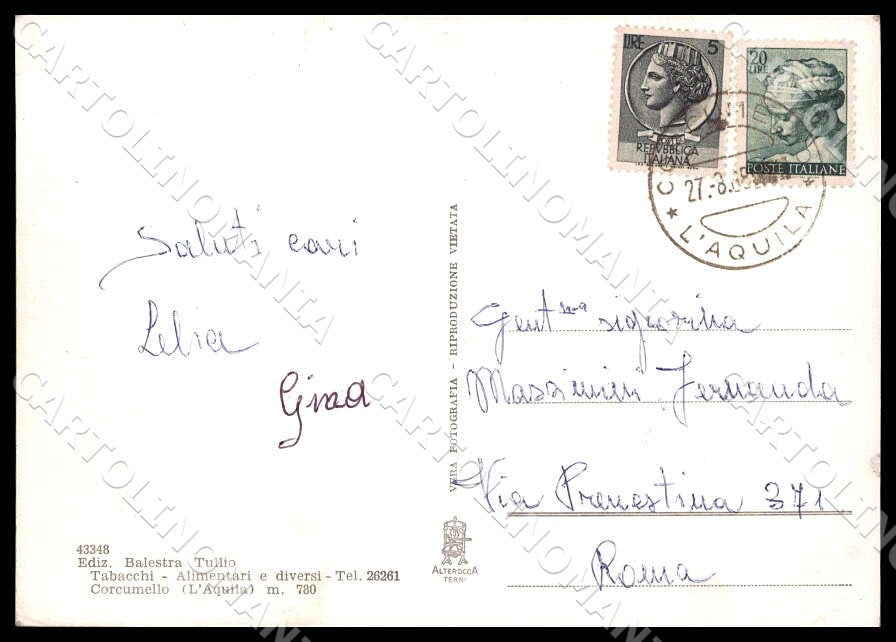 LIRE 5
REPVBBLICA
ITALIANA
20
LIRE
POSTE ITALIANE
27.-8.
* L'AQUILA *
Saluti cari
Lelia
Gina
VERA FOTOGRAFIA - RIPRODUZIONE VIETATA
Gent.ma signorina
Massimini Fernanda
Via Prenestina 371
Roma
43348
Ediz. Balestra Tullio
Tabacchi - Alimentari e diversi - Tel. 26261
Corcumello (L'Aquila) m. 780
ALTEROCCA
TERNI
CARTOLINOMANIA
CARTOLINOMANIA
CARTOLINOMANIA
CARTOLINOMANIA